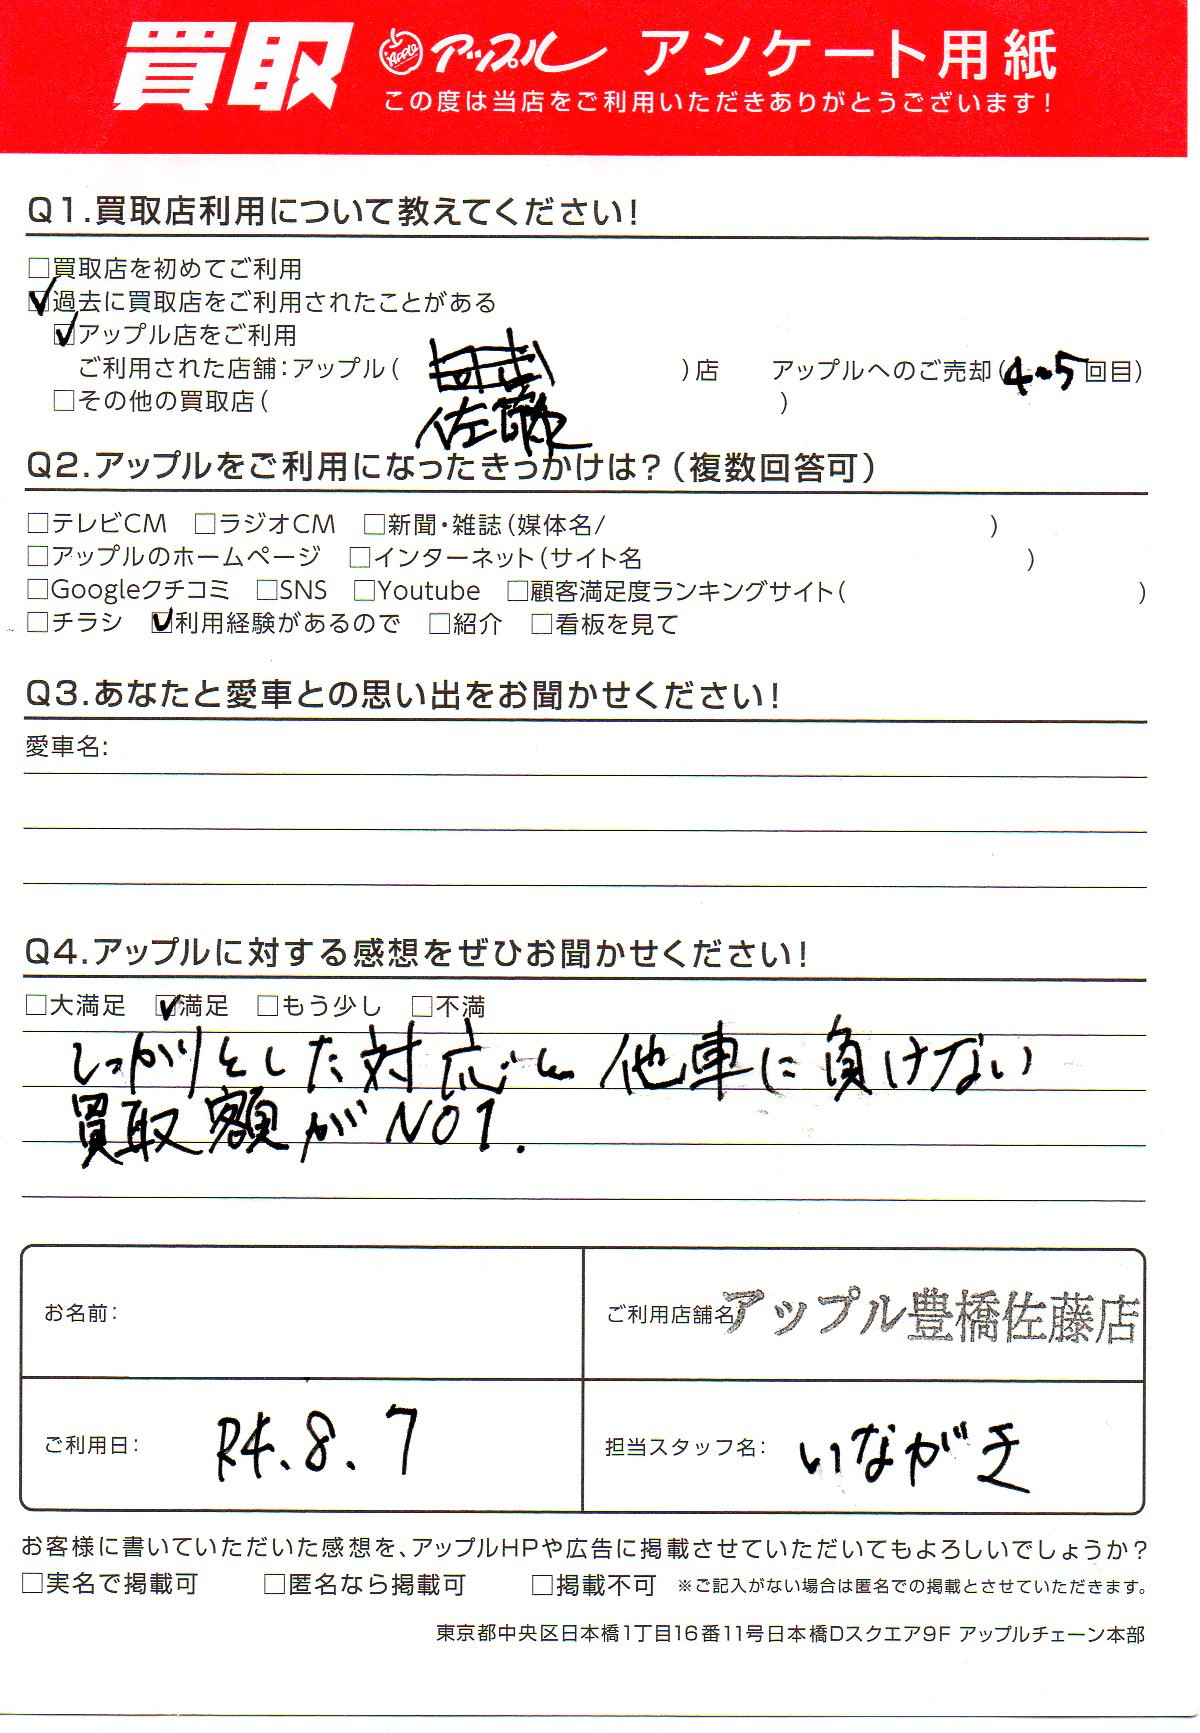 買取 Apple アップル アンケート用紙
この度は当店をご利用いただきありがとうございます!
Q1.買取店利用について教えてください!
□買取店を初めてご利用
☑過去に買取店をご利用されたことがある
☑アップル店をご利用
ご利用された店舗:アップル( )店 アップルへのご売却(4~5回目)
佐藤
□その他の買取店( )
Q2.アップルをご利用になったきっかけは?(複数回答可)
□テレビCM □ラジオCM □新聞・雑誌(媒体名/ )
□アップルのホームページ □インターネット(サイト名 )
□Googleクチコミ □SNS □Youtube □顧客満足度ランキングサイト( )
□チラシ ☑利用経験があるので □紹介 □看板を見て
Q3.あなたと愛車との思い出をお聞かせください!
愛車名:
Q4.アップルに対する感想をぜひお聞かせください!
□大満足 ☑満足 □もう少し □不満
しっかりとした対応と 他車に負けない
買取額がNO1.
お名前:
ご利用店舗名 アップル豊橋佐藤店
ご利用日: R4.8.7
担当スタッフ名: いながき
お客様に書いていただいた感想を、アップルHPや広告に掲載させていただいてもよろしいでしょうか?
□実名で掲載可 □匿名なら掲載可 □掲載不可 ※ご記入がない場合は匿名での掲載とさせていただきます。
東京都中央区日本橋1丁目16番11号日本橋Dスクエア9F アップルチェーン本部